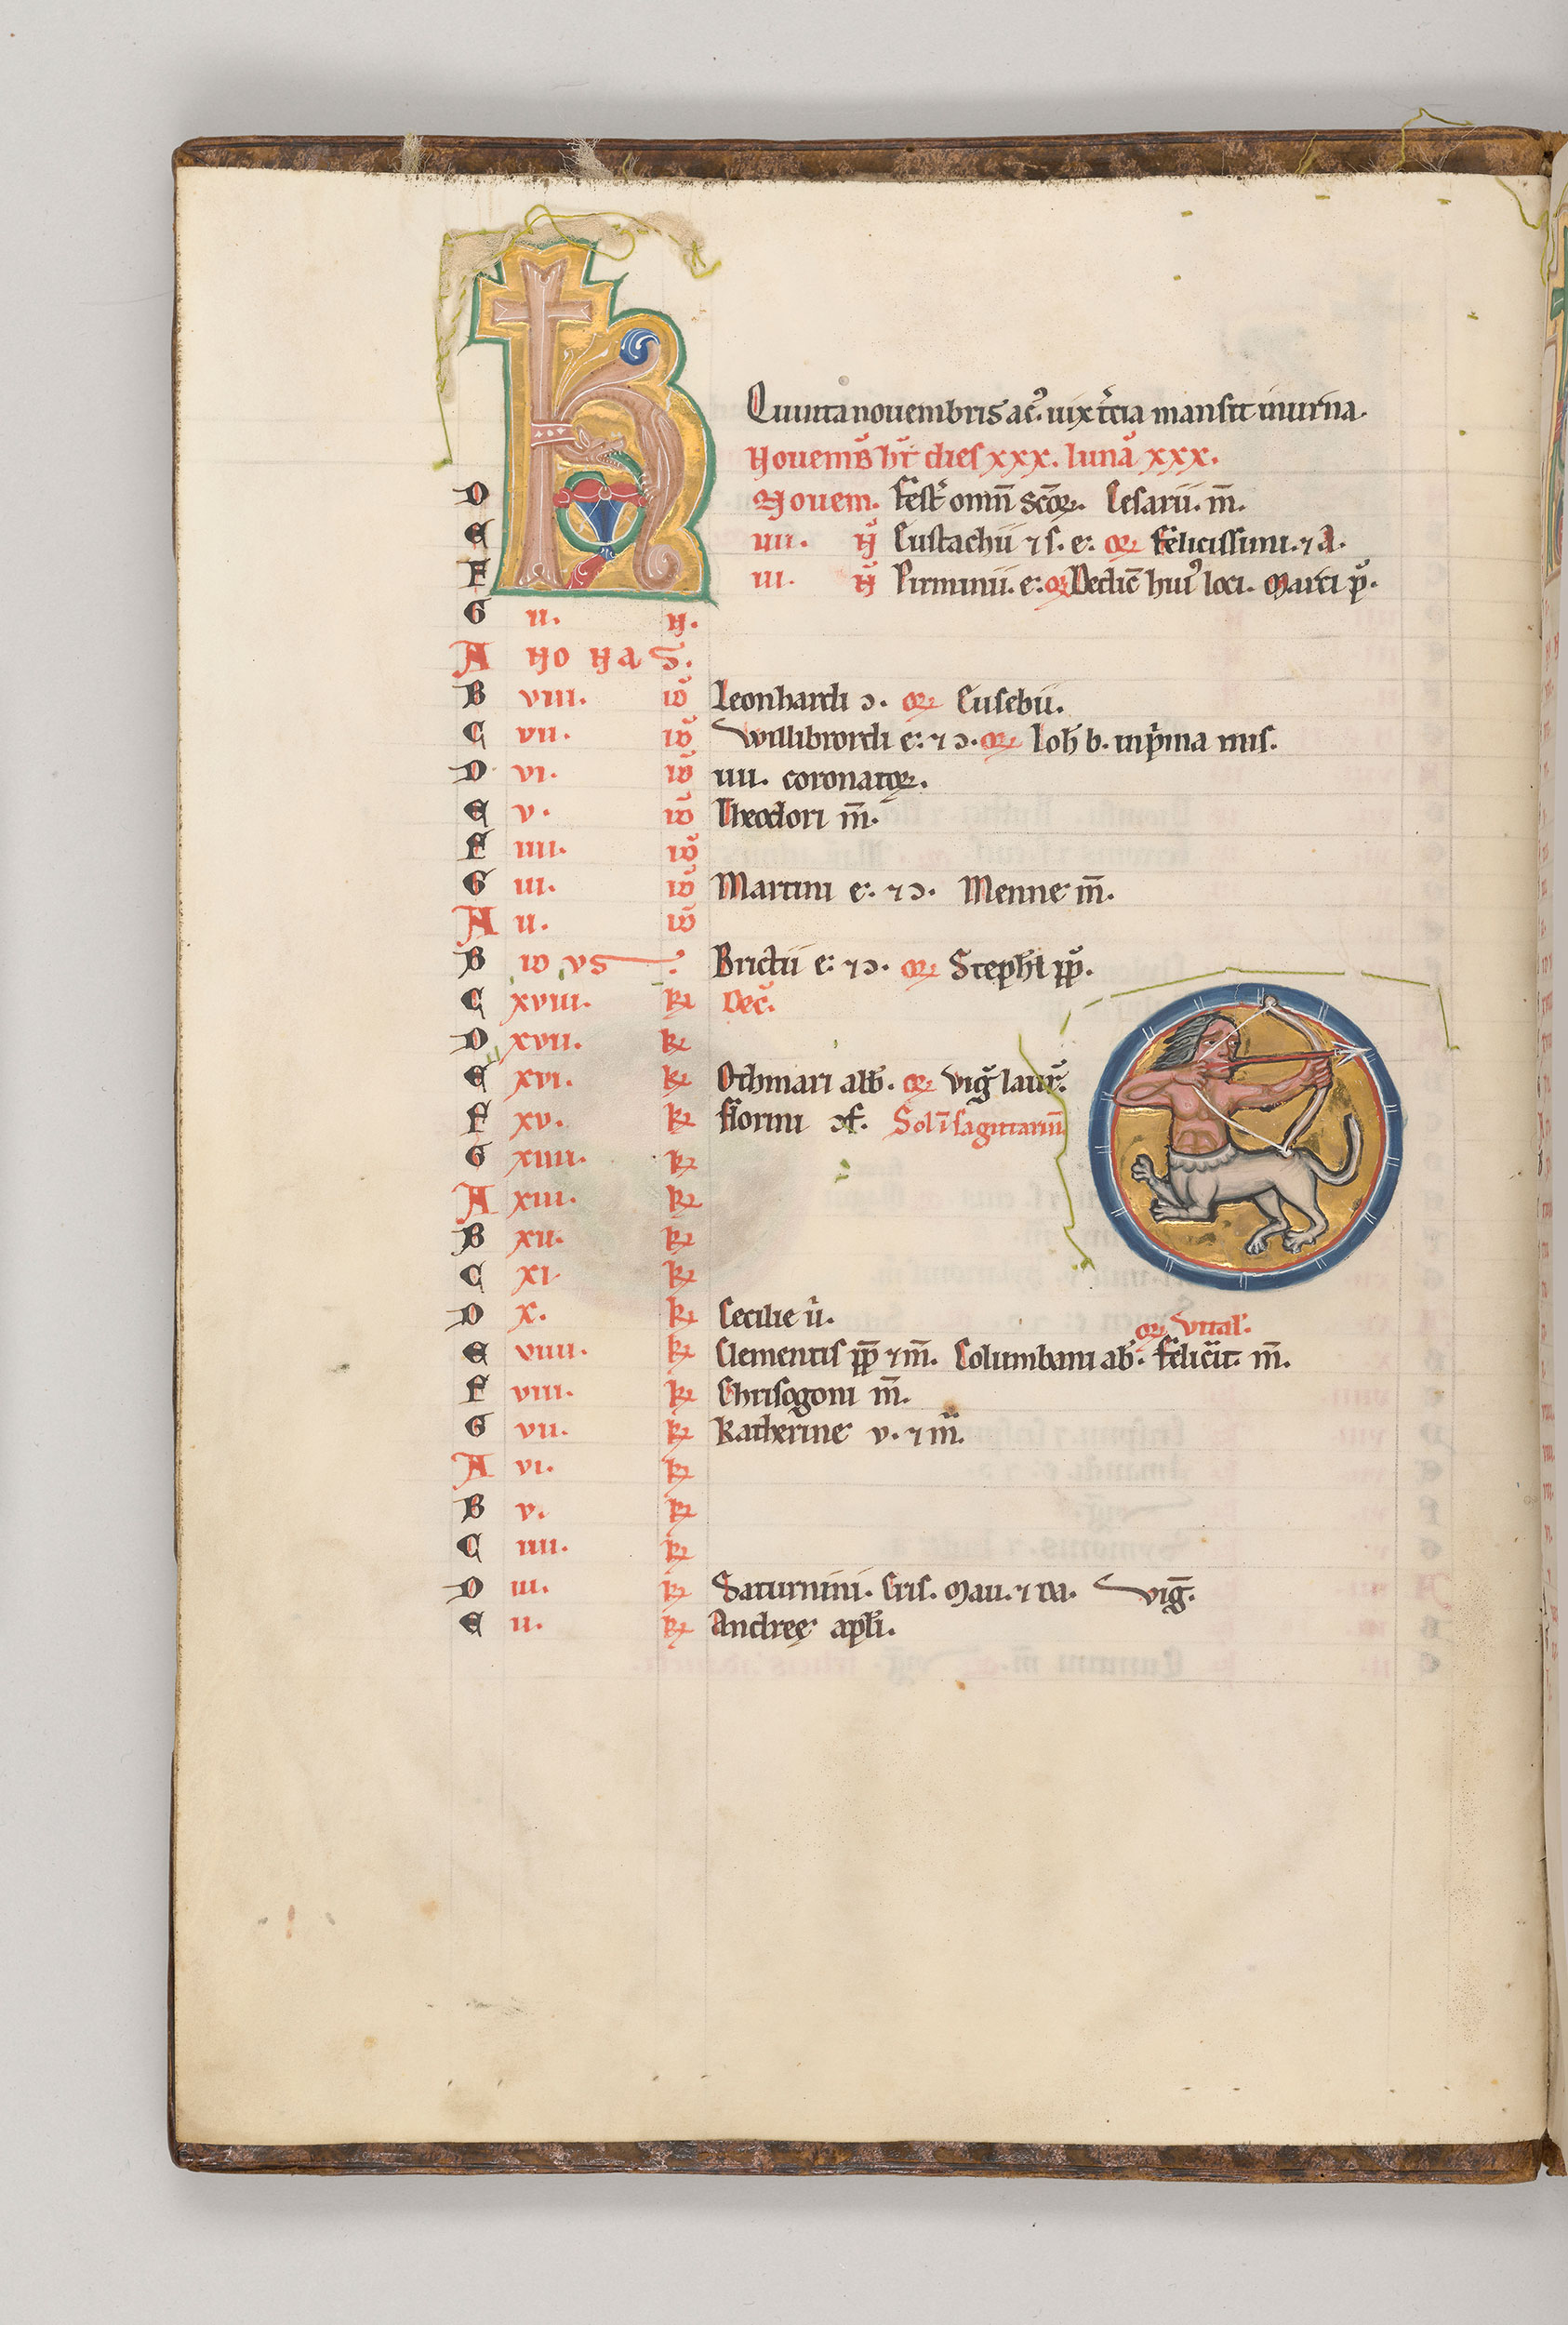 Quinta novembris ac᷒. uix t̾cia mansit in urna.
Novemb̾ ht̾ dies xxx. luna᷒ xxx.
D Novem. Fest̾ omn̄ Sc̄oꝝ. Cesarii. m̄.
E iiii. N̾ Eustachii ⁊ s. e. oꝝ Felicissimi. ⁊ A.
F iii. N̾ Pirminii. e. oꝝ Dedic̄ hui᷒ loci. Marci p̾.
G ii. N.
A NONAS.
B viii. id̾ Leonhardi ɔ. oꝝ Eusebii.
C vii. id̾ Willibrordi e. ⁊ ɔ. oꝝ Ioh̄ b. in p̾ma mis.
D vi. id̾ iiii. coronatoꝝ.
E v. id̾ Theodori m̄.
F iiii. id̾
G iii. id̾ Martini e. ⁊ ɔ. Menne m̄.
A ii. id̾
B idus. Brictii e. ⁊ ɔ. oꝝ Steph̄i pp̾.
C xviii. kꝶ Dec̾.
D xvii. kꝶ
E xvi. kꝶ Othmari abb̾. oꝝ Vig̾ laur̾.
F xv. kꝶ Florini ɔf. Sol ī sagittariū
G xiiii. kꝶ
A xiii. kꝶ
B xii. kꝶ
C xi. kꝶ
D x. kꝶ Cecilie v̾.
oꝝ Vital̾.
E viiii. kꝶ Clementis pp̄ ⁊ m̄. Columbani ab̾. Felicit̾. m̄.
F viii. kꝶ Chrisogoni m̄.
G vii. kꝶ Katherine v. ⁊ m̄.
A vi. kꝶ
B v. kꝶ
C iiii. kꝶ
D iii. kꝶ Saturnini. Cris. Mau. ⁊ Da. Viḡ.
E ii. kꝶ Andreę apl̾i.